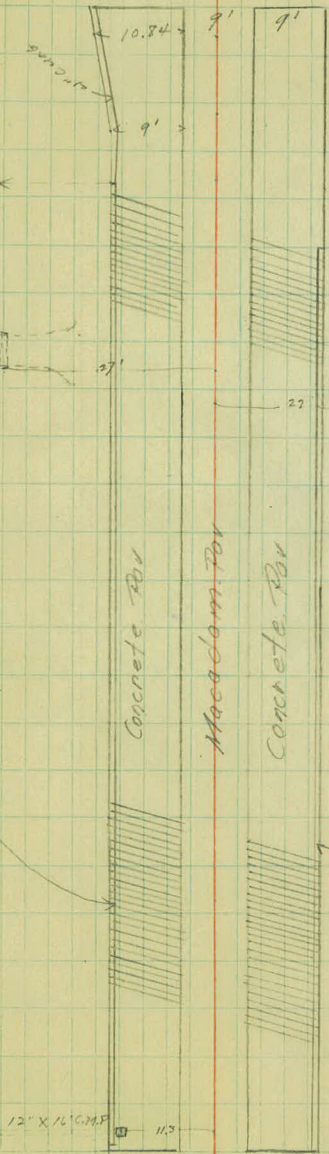 10.84
9'
9'
9'
27'
27
Concrete Pav
Macadam Pav
Concrete Pav
12" X 16' C.M.P
11.3